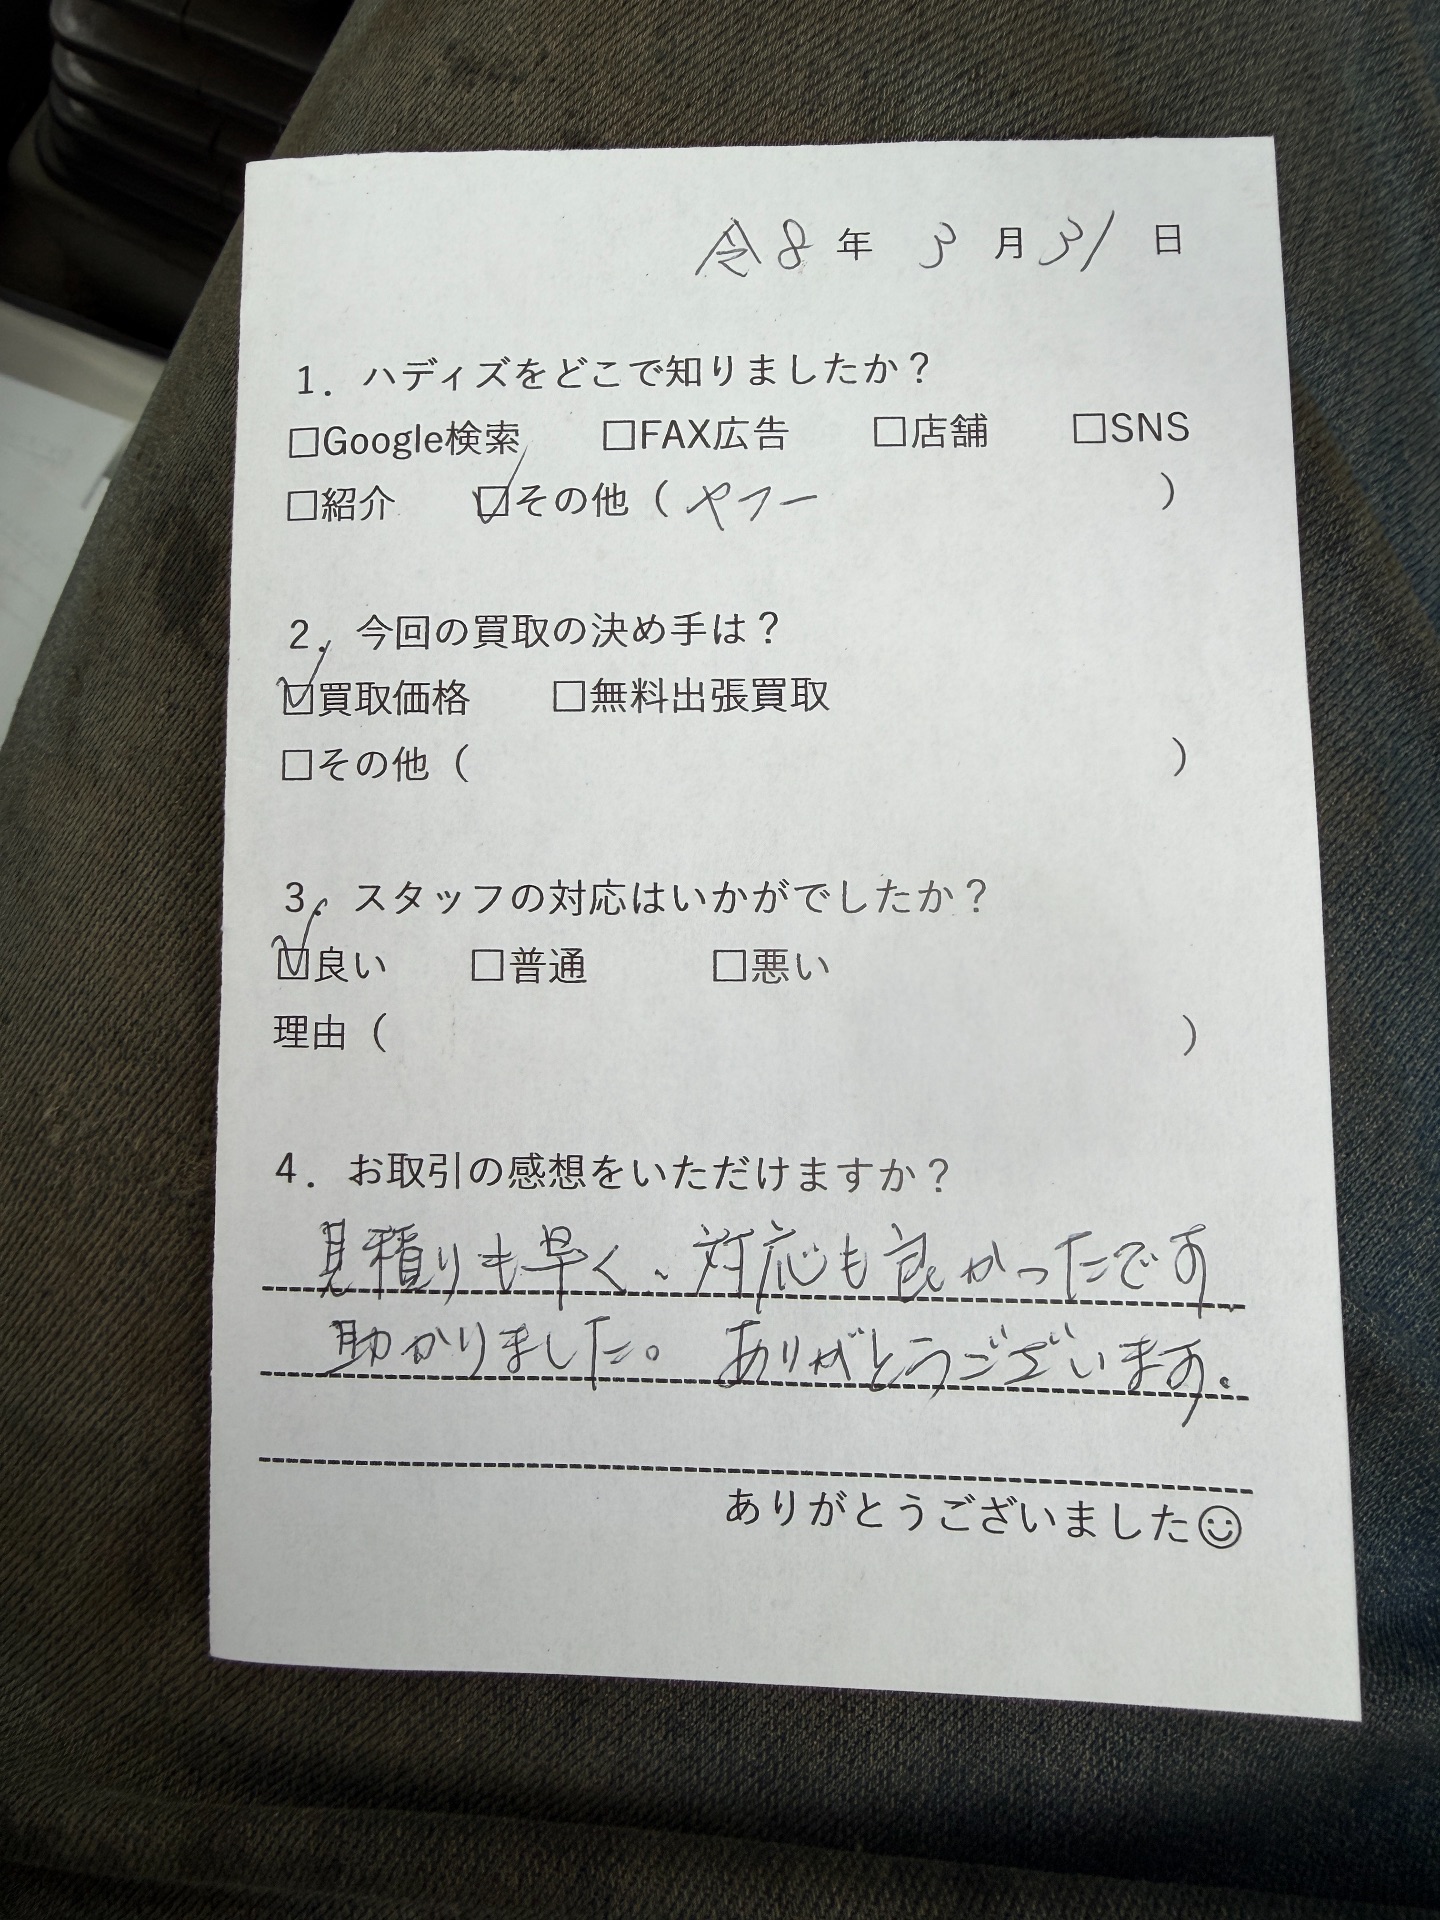 令8年 3月31日
1. ハディズをどこで知りましたか?
□Google検索 □FAX広告 □店舗 □SNS
□紹介 ☑その他(ヤフー)
2. 今回の買取の決め手は?
☑買取価格 □無料出張買取
□その他( )
3. スタッフの対応はいかがでしたか?
☑良い □普通 □悪い
理由( )
4. お取引の感想をいただけますか?
見積りも早く、対応も良かったです
助かりました。ありがとうございます。
ありがとうございました☺